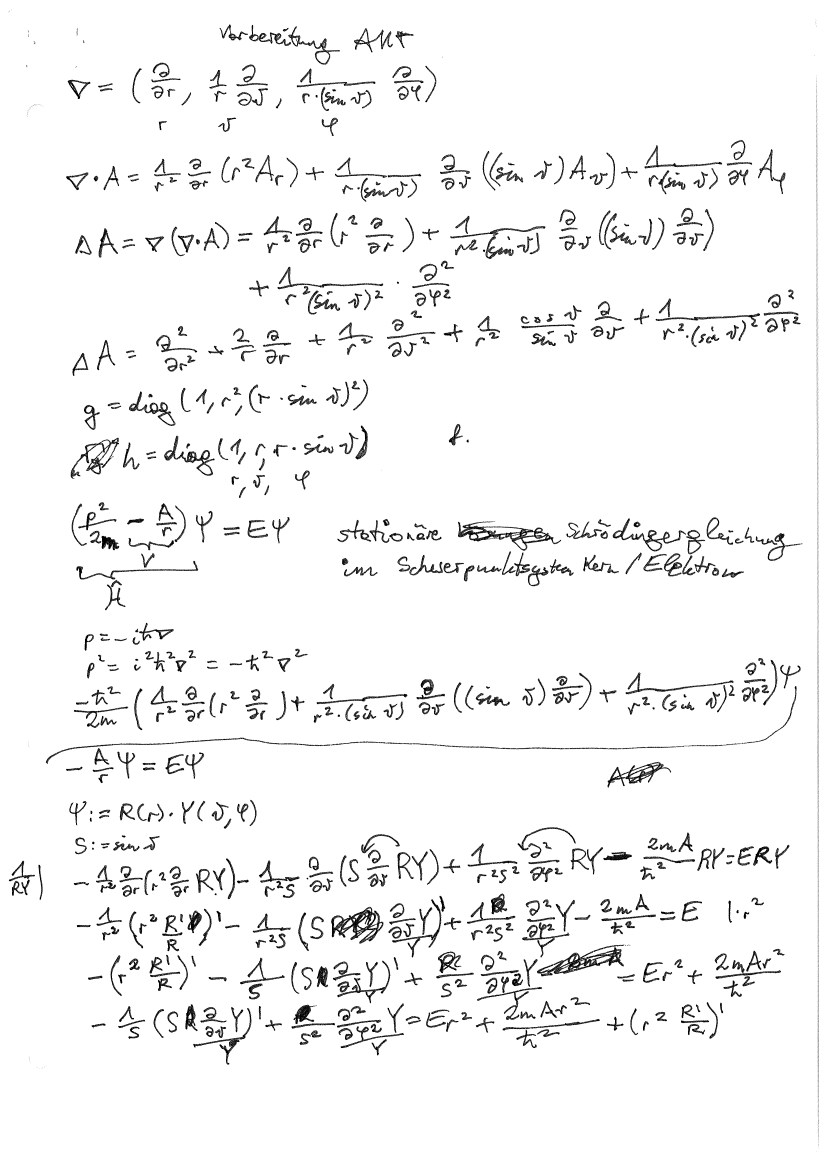 Vorbereitung AKT
∇ = (∂/∂r, 1/r ∂/∂ϑ, 1/(r·(sin ϑ)) ∂/∂φ)
r ϑ φ
∇·A = 1/r² ∂/∂r (r² A_r) + 1/(r·(sin ϑ)) ∂/∂ϑ ((sin ϑ) A_ϑ) + 1/(r·(sin ϑ)) ∂/∂φ A_φ
ΔA = ∇(∇·A) = 1/r² ∂/∂r (r² ∂/∂r) + 1/(r²·(sin ϑ)) ∂/∂ϑ ((sin ϑ) ∂/∂ϑ)
+ 1/(r²(sin ϑ)²) · ∂²/∂φ²
ΔA = ∂²/∂r² + 2/r ∂/∂r + 1/r² ∂²/∂ϑ² + 1/r² cos ϑ/sin ϑ ∂/∂ϑ + 1/(r²·(sin ϑ)²) ∂²/∂φ²
g = diag (1, r², (r · sin ϑ)²)
h = diag (1, r, r · sin ϑ)
r, ϑ, φ
(p²/2m − A/r) Ψ = EΨ stationäre Schrödingergleichung
V
im Scherpunktsystem Kern / Elektron
Ĥ
p = −iħ∇
p² = i²ħ²∇² = −ħ²∇²
−ħ²/2m (1/r² ∂/∂r (r² ∂/∂r) + 1/(r²·(sin ϑ)) ∂/∂ϑ ((sin ϑ) ∂/∂ϑ) + 1/(r²·(sin ϑ)²) ∂²/∂φ²) Ψ
− A/r Ψ = EΨ
Ψ := R(r)·Y(ϑ, φ)
S := sin ϑ
1/RY | − 1/r² ∂/∂r (r² ∂/∂r RY) − 1/(r²S) ∂/∂ϑ (S ∂/∂ϑ RY) + 1/(r²S²) ∂²/∂φ² RY − 2mA/ħ² RY = ERY
− 1/r² (r² R'/R)' − 1/(r²S) (S ∂/∂ϑ Y/Y)' + 1/(r²S²) ∂²/∂φ² Y/Y − 2mA/ħ² = E |·r²
− (r² R'/R)' − 1/S (S ∂/∂ϑ Y/Y)' + R/S² ∂²/∂φ² Y/Y = Er² + 2mAr²/ħ²
− 1/S (S ∂/∂ϑ Y/Y)' + 1/S² ∂²/∂φ² Y/Y = Er² + 2mAr²/ħ² + (r² R'/R)'